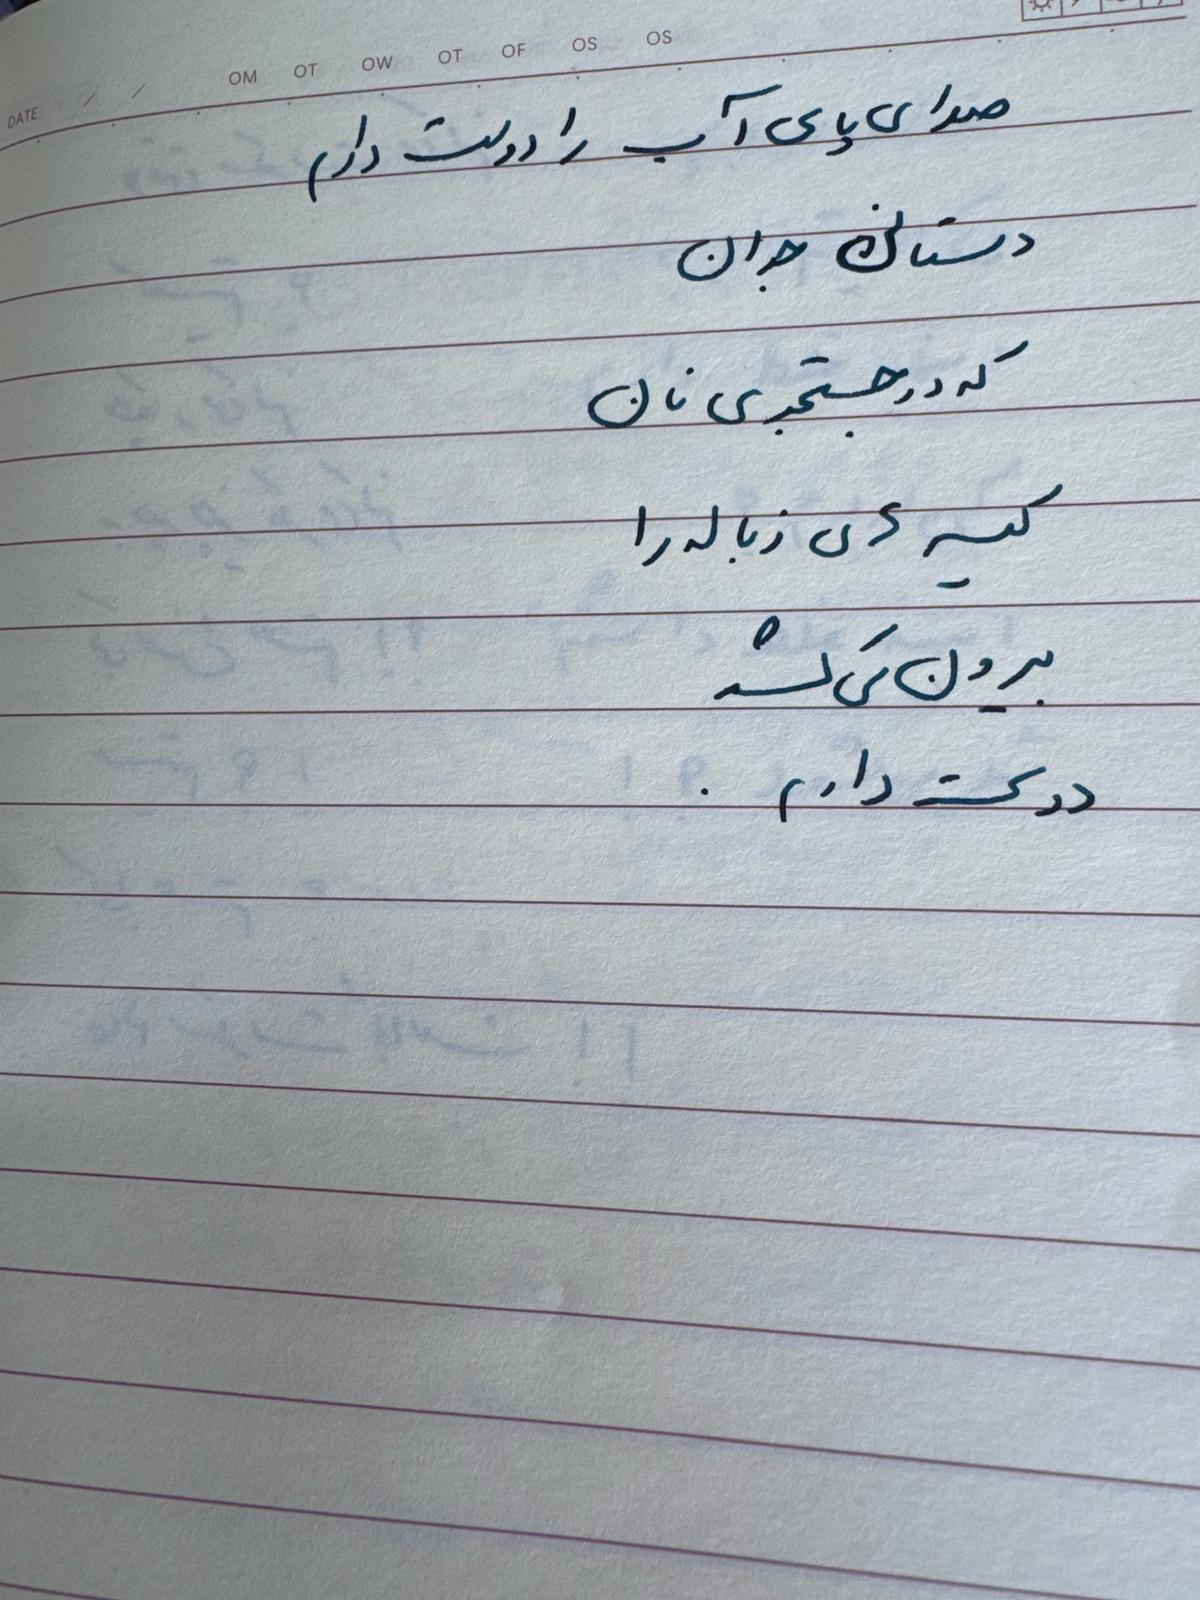 DATE / / OM OT OW OT OF OS OS
صدای پای آب را دوست دارم
دستانی جوان
که در جستجوی نان
کیسه های زباله را
بیرون می کشد
دوست دارم .